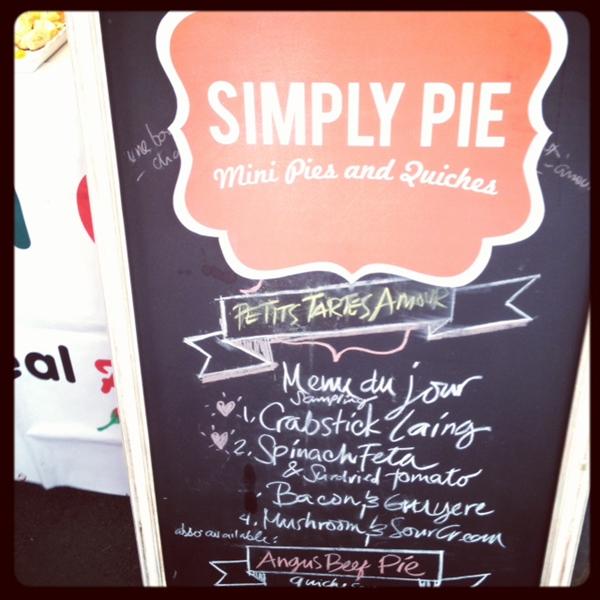 SIMPLY PIE
Mini Pies and Quiches
une bo
- cha
PETITS TARTES AMOUR
Menu du jour
Sampling
1. Crabstick Laing
2. Spinach, Feta
& Sundried tomato
Bacon & Gruyere
4. Mushroom & Sour Cream
also available:
Angus Beef Pie
quiches
eal